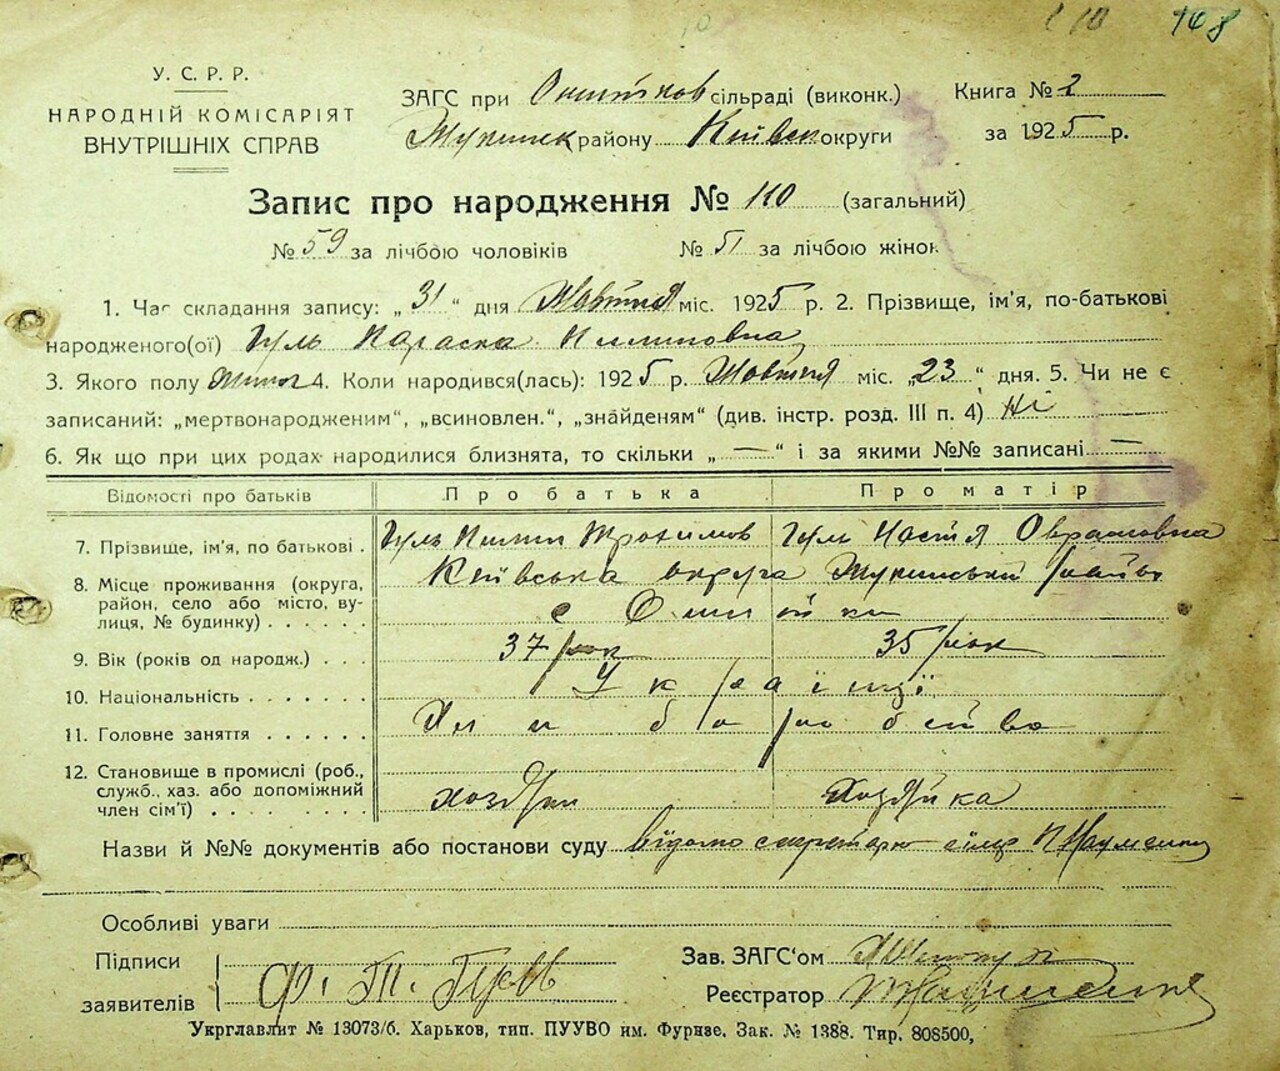 110 108
У. С. Р. Р.
НАРОДНІЙ КОМІСАРІЯТ
ВНУТРІШНІХ СПРАВ
ЗАГС при Ошитков сільраді (виконк.)
Жукинск району Київськ округи
Книга № 2
за 1925 р.
Запис про народження № 110 (загальний)
№ 59 за лічбою чоловіків № 51 за лічбою жінок
1. Час складання запису: „31“ дня Жовтня міс. 1925 р. 2. Прізвище, ім'я, по-батькові
народженого(ої) Гуль Параска Пилиповна
3. Якого полу жіноч 4. Коли народився(лась): 1925 р. Жовтня міс. „23“ дня. 5. Чи не є
записаний: „мертвонародженим“, „всиновлен.“, „знайденям“ (див. інстр. розд. III п. 4) Ні
6. Як що при цих родах народилися близнята, то скільки „—“ і за якими №№ записані —
Відомості про батьків Про батька Про матір
7. Прізвище, ім'я, по батькові . Гуль Пилип Трохимов Гуль Настя Оврамовна
8. Місце проживання (округа, Київська округа Жукинський район
район, село або місто, ву- с Ошитки
лиця, № будинку) . . . . . .
9. Вік (років од народж.) . . . 37 рок 35 рок
10. Національність . . . . . . . Українці
11. Головне заняття . . . . . . Хлиборобство
12. Становище в промислі (роб.,
служб., хаз. або допоміжний Хозяїн Хозяйка
член сім'ї) . . . . . . . . .
Назви й №№ документів або постанови суду відомо секретарю сілр П Науменку
Особливі уваги
Підписи
заявителів Ф. Т. Гуль
Зав. ЗАГС'ом
Реєстратор П Науменко
Укрглавлит № 13073/б. Харьков, тип. ПУУВО им. Фрунзе. Зак. № 1388. Тир. 808500,